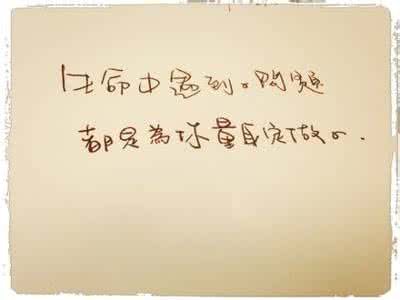 生命中遇到的問題
都是為你量身定做的.